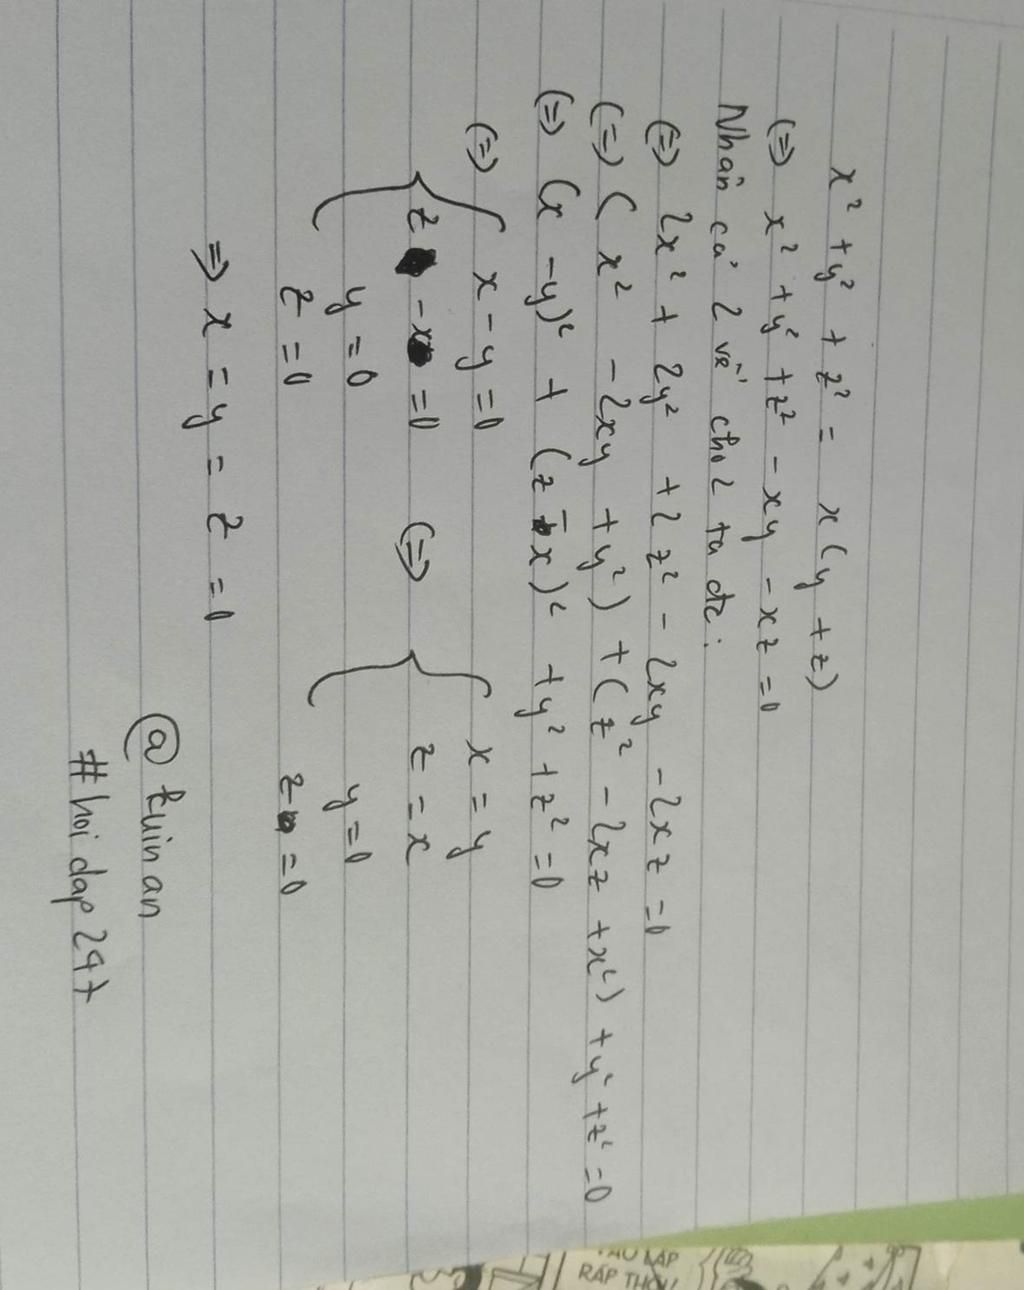 x² + y² + z² = x(y + z)
(=) x² + y² + z² - xy - xz = 0
Nhân cả 2 vế cho 2 ta đc:
(=) 2x² + 2y² + 2z² - 2xy - 2xz = 0
(=) (x² - 2xy + y²) + (z² - 2xz + x²) + y² + z² = 0
(=) (x - y)² + (z - x)² + y² + z² = 0
(=) { x - y = 0 (=) { x = y
z - x = 0 z = x
y = 0 y = 0
z = 0 z = 0
=> x = y = z = 0
@tuinan
#hoidap247
TAU LAP
RAP THOI